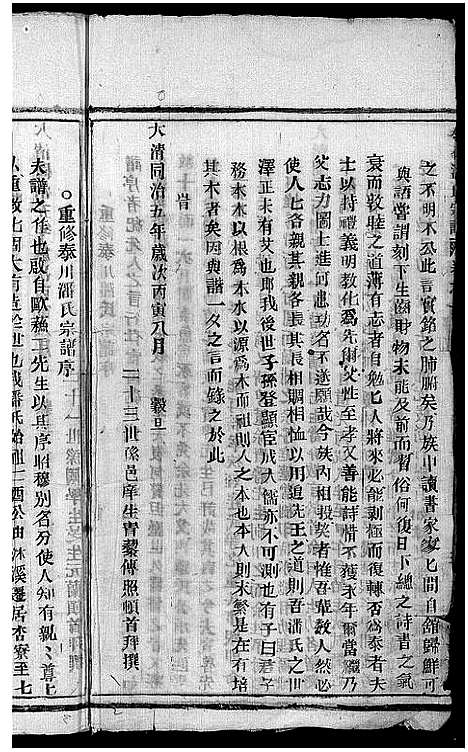 之不明不公此言實銘之肺腑矣乃族中讀書家安七間自錦歸鮮可
與語嘗謂刻下生齒財物未能及前而習俗何復日下總之詩書之氣
衰而敦睦之道薄有志者自勉七人將來必能剥極而復轉否為泰者夫
士以持禮義明教化為先爾父性至孝又善能詩惜不獲永年爾當繼乃
父志力圖士進何患功名不遂願哉今族內相投契者惟吾輩教人然必
使人七各親其親各長其長相賙相恤以用追先王之道則吾潘氏之世
澤正未有艾也即我後世子孫登顯宦成大儒亦不可測也有子曰君子
務本水以根為本水以源為本而祖則人之本也本大則末繁是在有培
其本者矣因與諧一夕之言而錄之於此
大清同治五年歲次丙寅八月 穀旦
二十三世孫邑庠生
傳照頓首拜撰
重修泰川潘氏宗譜序
夫譜之作也啟自歐蘇二先生以其序昭穆別名分使人知有親七尊七